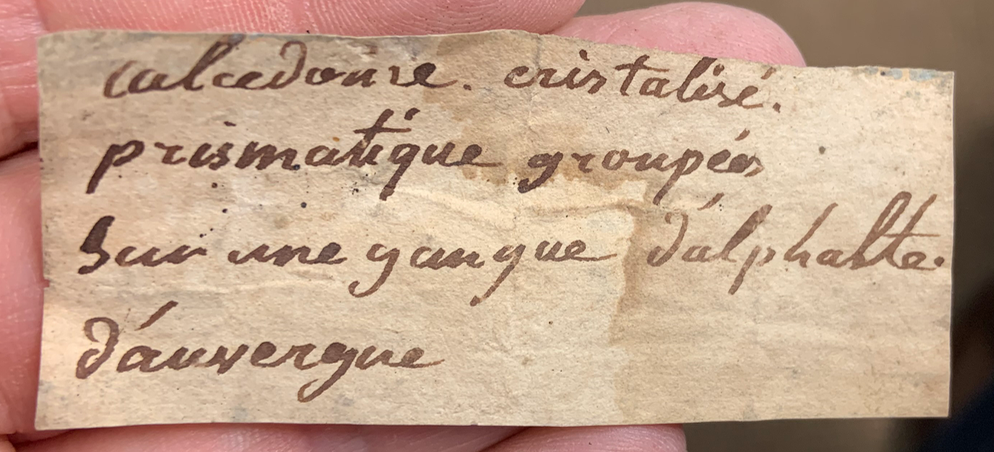 calcedoine. cristalisé.
prismatique groupées
sur une gangue d'alphalte.
d'auvergne